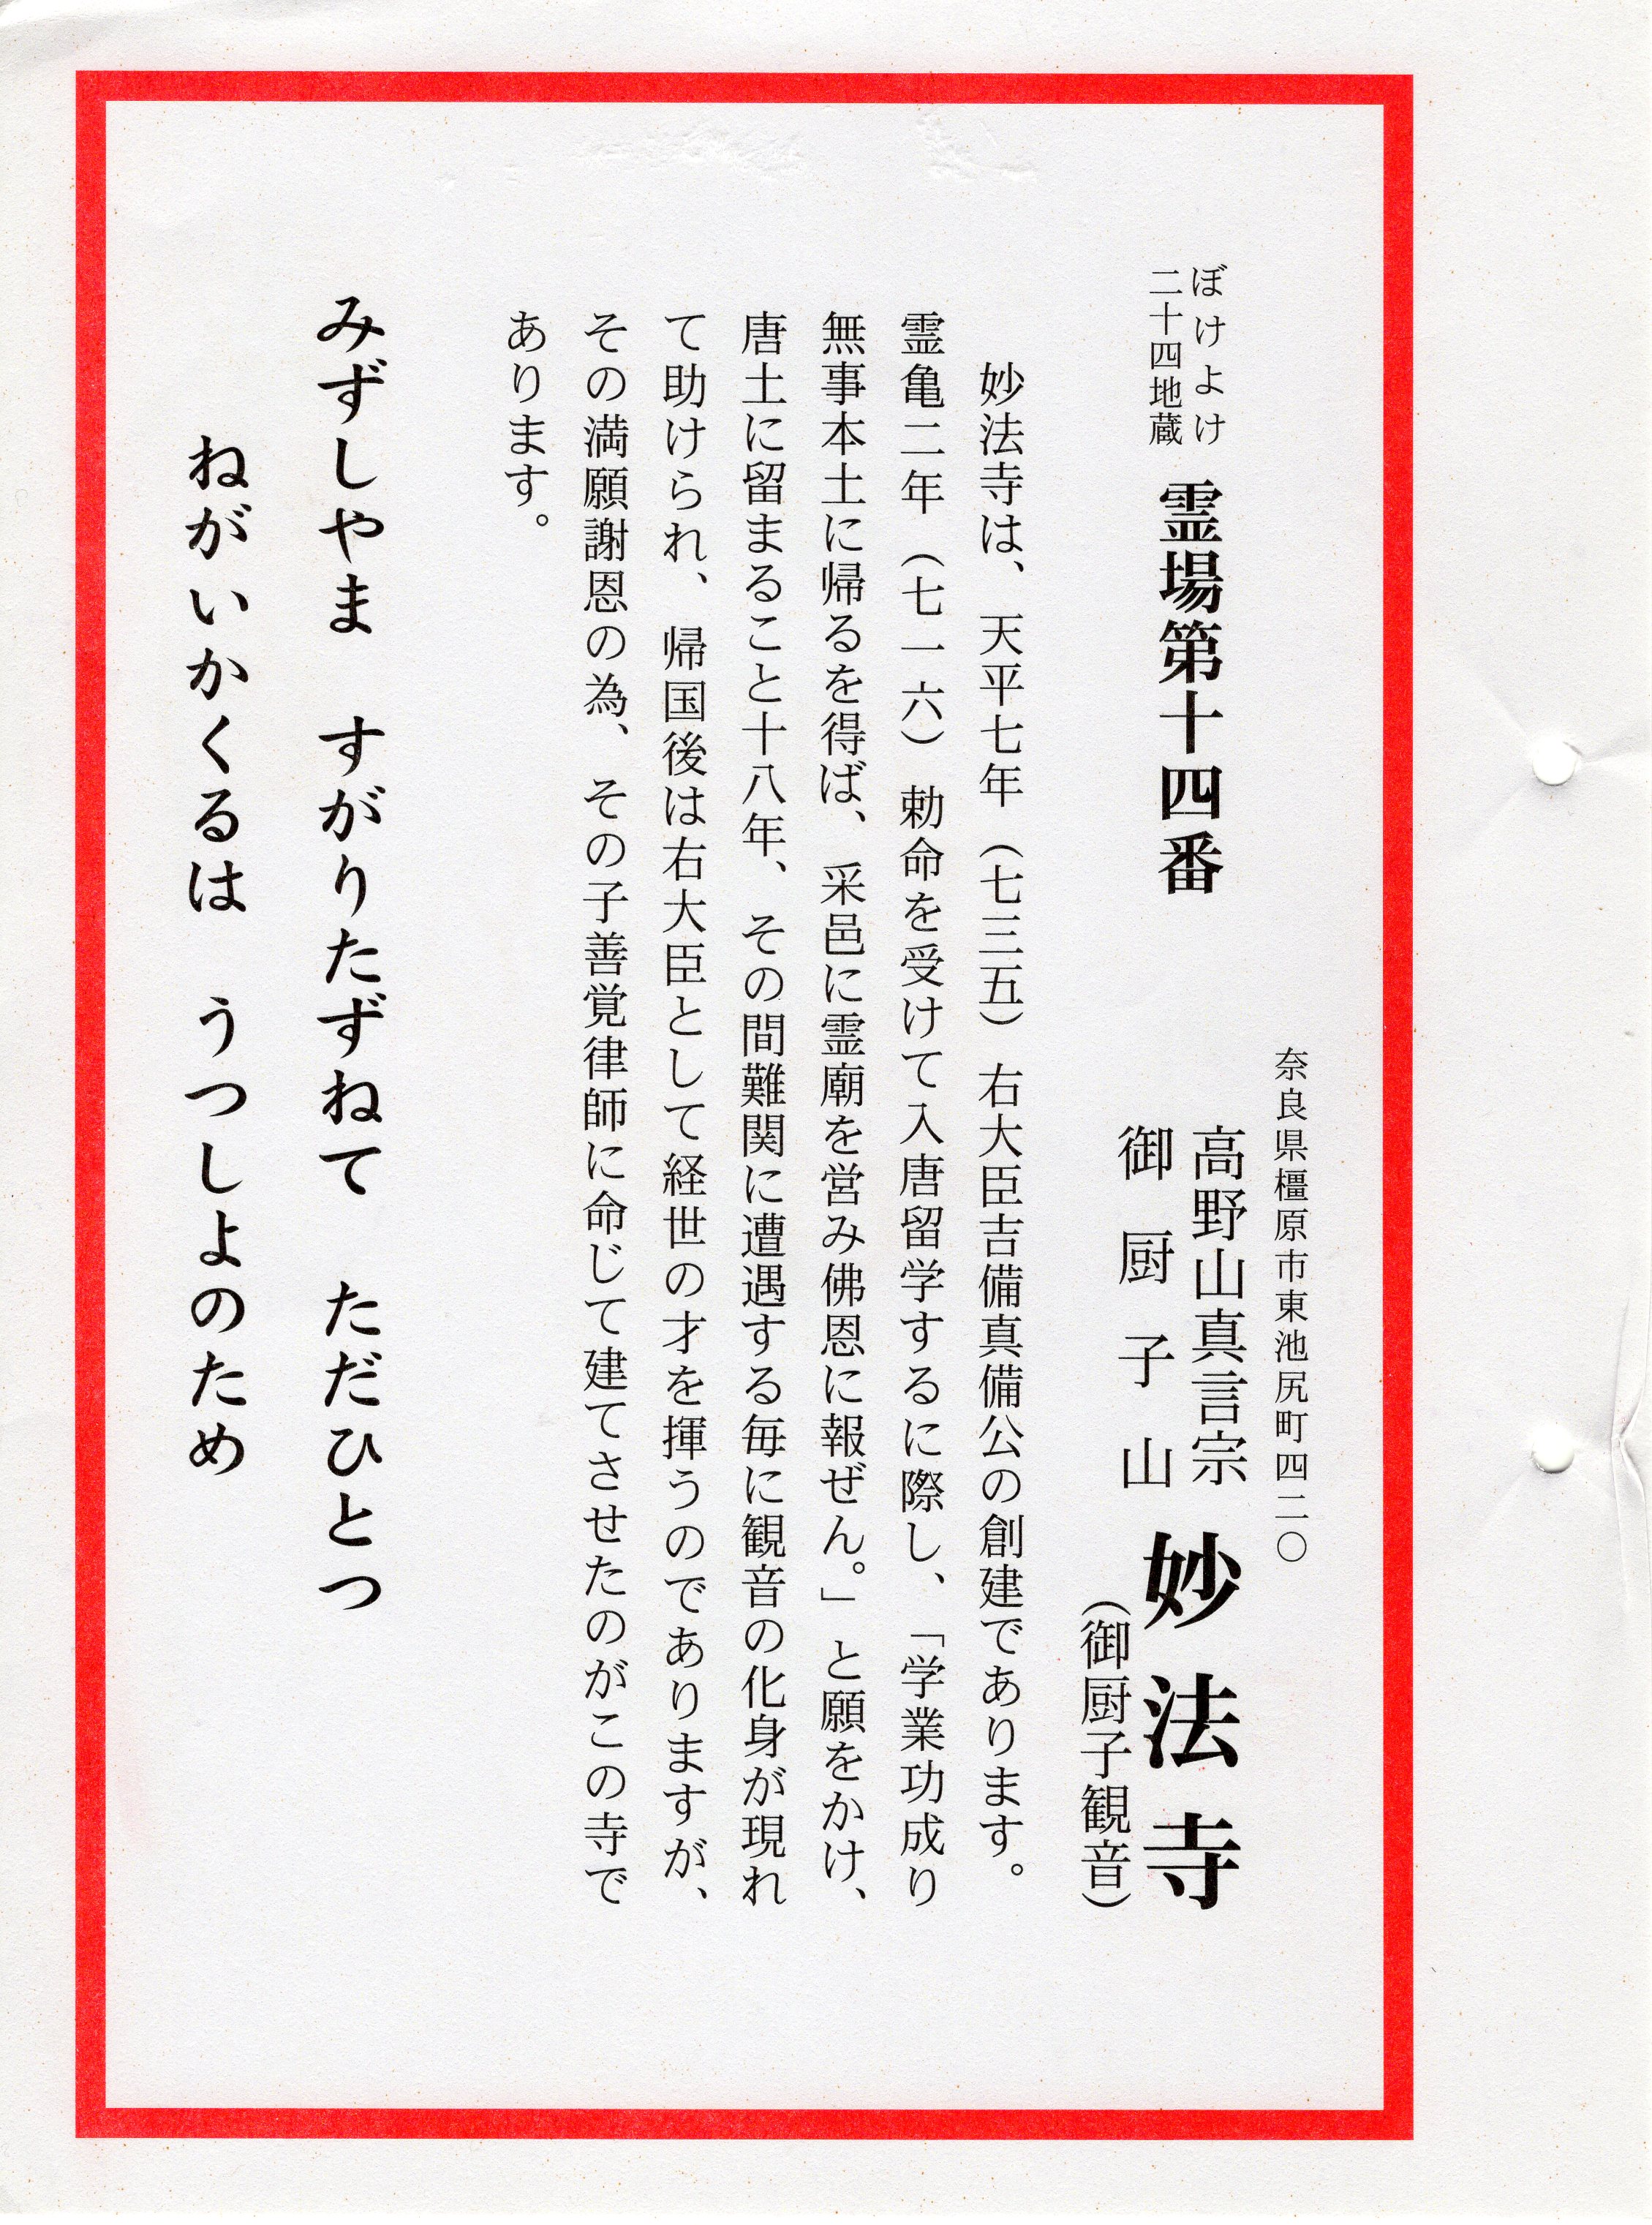 ぼけよけ
二十四地蔵
霊場第十四番
奈良県橿原市東池尻町四二〇
高野山真言宗
御厨子山
妙法寺
（御厨子観音）
妙法寺は、天平七年（七三五）右大臣吉備真備公の創建であります。
霊亀二年（七一六）勅命を受けて入唐留学するに際し、「学業功成り
無事本土に帰るを得ば、采邑に霊廟を営み佛恩に報ぜん。」と願をかけ、
唐土に留まること十八年、その間難関に遭遇する毎に観音の化身が現れ
て助けられ、帰国後は右大臣として経世の才を揮うのでありますが、
その満願謝恩の為、その子善覚律師に命じて建てさせたのがこの寺で
あります。
みずしやま　すがりたずねて　ただひとつ
ねがいかくるは　うつしよのため